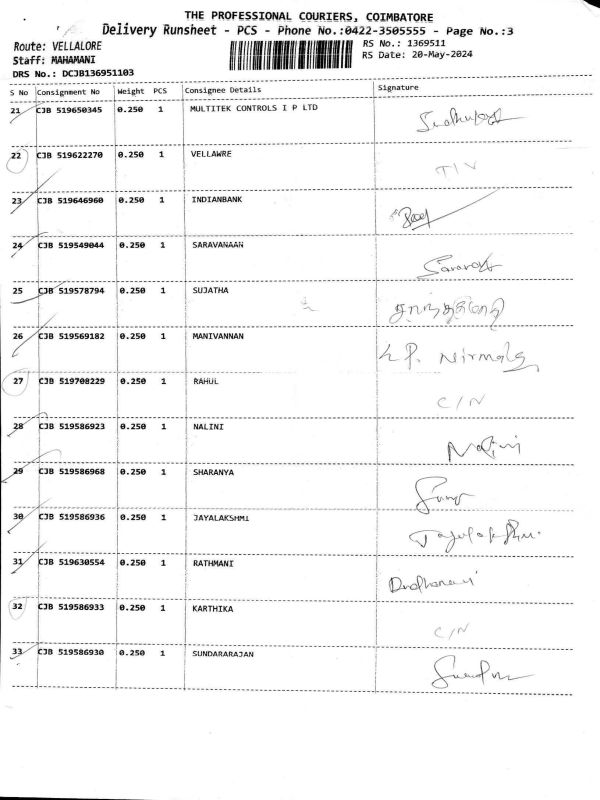 THE PROFESSIONAL COURIERS, COIMBATORE
Delivery Runsheet - PCS - Phone No.:0422-3505555 - Page No.:3
Route: VELLALORE
RS No.: 1369511
Staff: MAHAMANI
RS Date: 20-May-2024
DRS No.: DCJB136951103
S No Consignment No Weight PCS Consignee Details Signature
21 CJB 519650345 0.250 1 MULTITEK CONTROLS I P LTD
22 CJB 519622270 0.250 1 VELLAWRE
23 CJB 519646960 0.250 1 INDIANBANK
24 CJB 519549044 0.250 1 SARAVANAAN
25 CJB 519578794 0.250 1 SUJATHA
26 CJB 519569182 0.250 1 MANIVANNAN P. Nirmala
27 CJB 519708229 0.250 1 RAHUL C/N
28 CJB 519586923 0.250 1 NALINI Nalini
29 CJB 519586968 0.250 1 SHARANYA
30 CJB 519586936 0.250 1 JAYALAKSHMI
31 CJB 519630554 0.250 1 RATHMANI
32 CJB 519586933 0.250 1 KARTHIKA C/N
33 CJB 519586930 0.250 1 SUNDARARAJAN